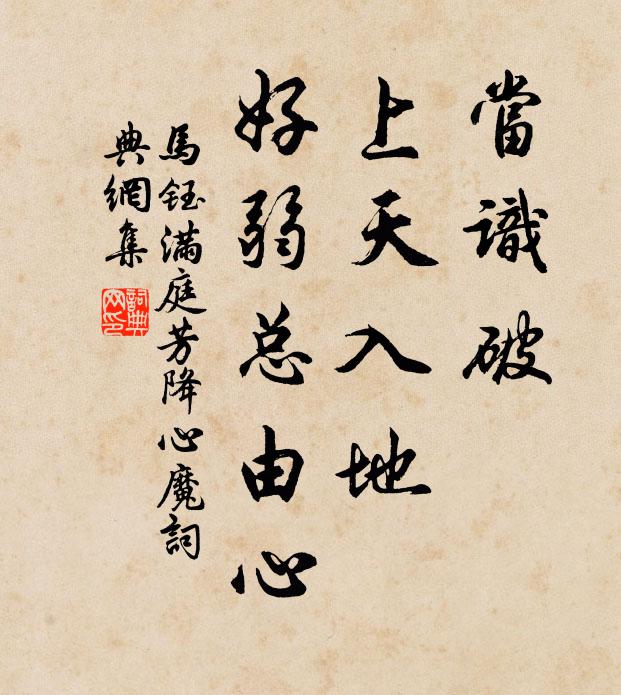 當識破
上天入地
好弱总由心
馬鈺满庭芳降心魔詞
典網集
詞典
网印